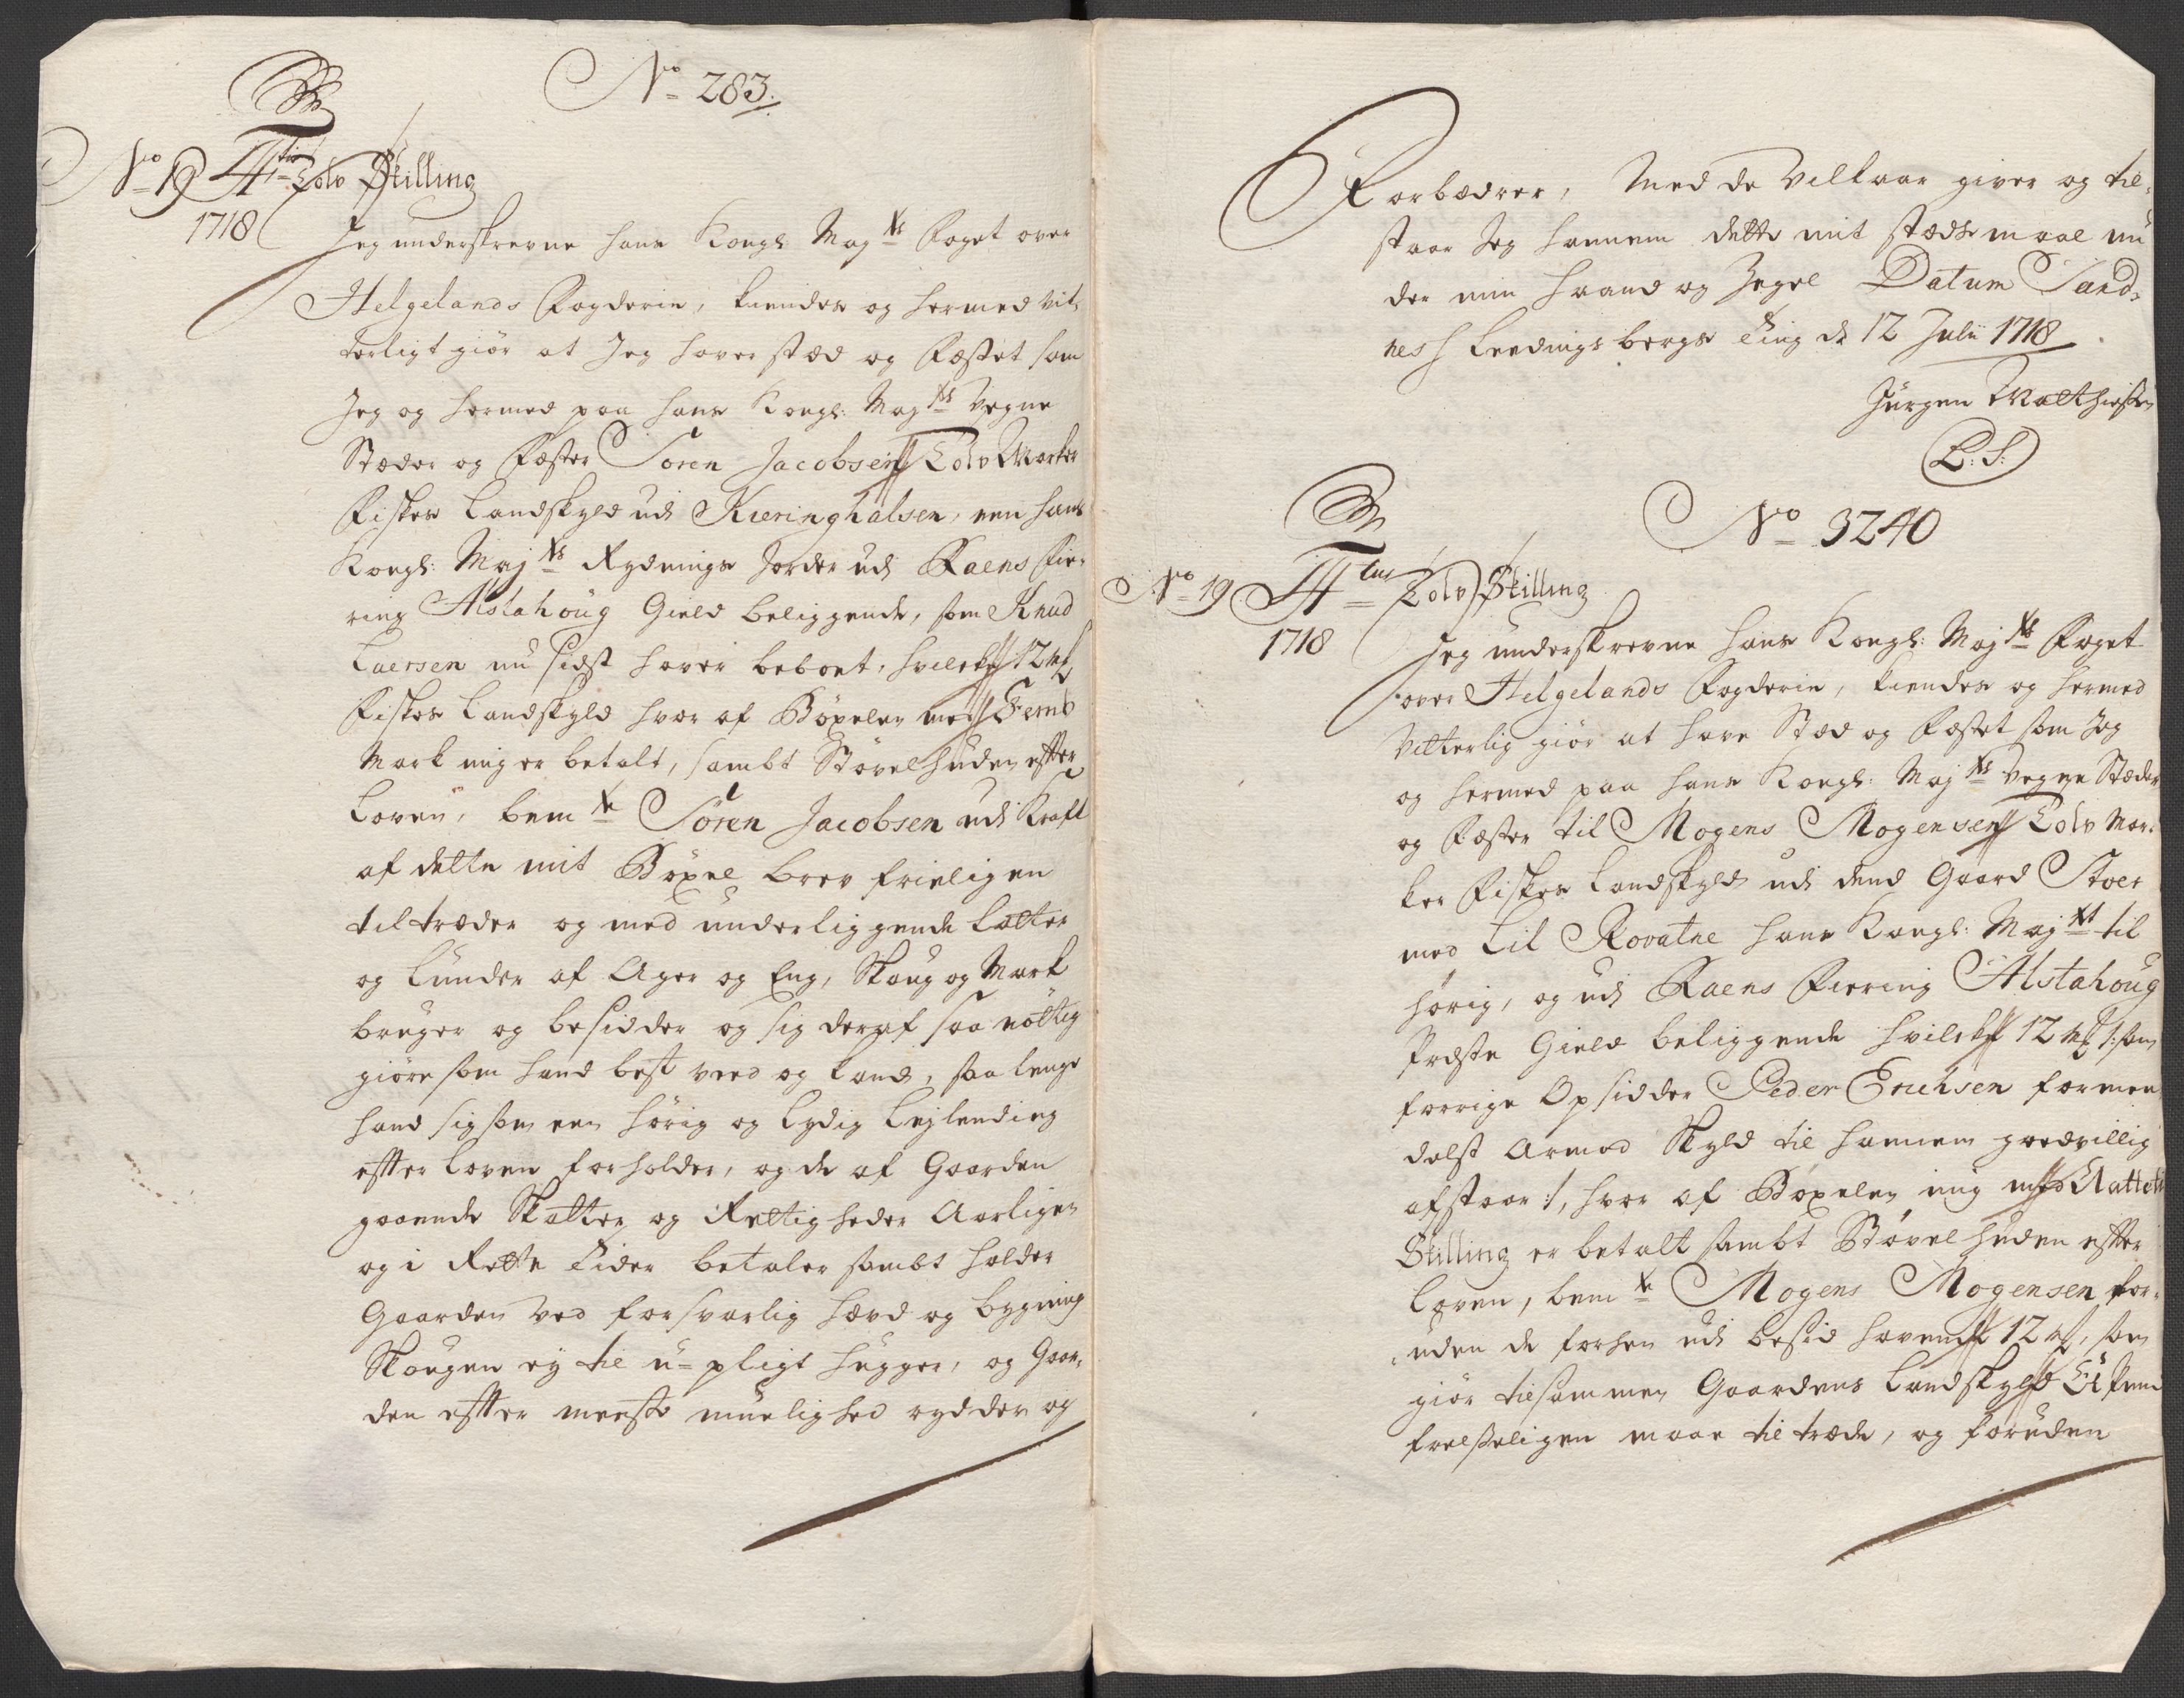 No 283.
No 19 4 tus Tolv Skilling
1718
Jeg underskrevne hans Kongl: Mayts Foget over
Helgelands Fogderie, kiendes og hermed vit-
terligt giør at Jeg haver stæd og Fæstet som
Jeg og hermed paa hans Kongl: Mayts Vegne
Stæder og Fæster Søren Jacobsen Tolv Marker
Fiskes Landskyld udi Kieringhalsen, een hans
Kongl: Mayts Rydnings Jorder udi Raens Fie-
ring Alstahoug Gield beliggende, som Knud
Laersen nu sidst haver beboet, hvilche 12 mk
Fiskes Landskyld hvor af Böxelen med Femb
Mark mig er betalt, sambt Støvelhuden effter
Loven, bemte Søren Jacobsen udi Krafft
af dette mit Böxel brev frieligen
tiltræder og med underliggende Lotter
og Lunder af Ager og Eng, Skoug og Mark
bruger og besidder og sig deraf saa nöttig
giøre som hand best veed og kand, saa lenge
hand sig som een hørig og lydig Leylending
effter Loven forholder, og de af Gaarden
gaaende Skatter og Rettigheder Aarligen
og i Rette Tider betaler sambt holder
Gaarden ved forsvarlig hævd og bygning
Skougen ey til u-pligt hugger, og Gaar-
den effter meeste muelighed rydder og
Forbædrer, Med de Vilkaar giver og til-
staar Jeg hannem dette mit stædsmaal un
der min Haand og Zegel Datum Sand-
nes Leedingsbergs Ting d: 12 Julii 1718
Jürgen Matthiessen
L: S:
No 3240
No 19 4 tus Tolv Skilling
1718
Jeg underskrevne hans Kongl: Mayts Foget
over Helgelands Fogderie, kiendes og hermed
vitterlig giør at have Stæd og Fæstet som Jeg
og hermed paa hans Kongl: Mayts Vegne Stæder
og Fæster til Mogens Mogensen Tolv Mar-
ker Fiskes Landskyld udi dend Gaard Stoer
med Lil Rovatne hans Kongl: Mayts til
hørig, og udi Raens Fiering Alstahoug
Præste Gield beliggende hvilche 12 mk /: som
forrige Opsidder Peder Erichsen formee
delst Armod Skyld til hannem goedvillig
afstaar :/, hvor af Böxelen mig med Aatte
Skilling er betalt sambt Støvelhuden effter
Loven, bemte Mogens Mogensen for-
uden de forhen udi besid havende 12 mk, som
giør tilsammen Gaardens Landskyld Et Pund
frelseligen maae tiltræde, og foruden